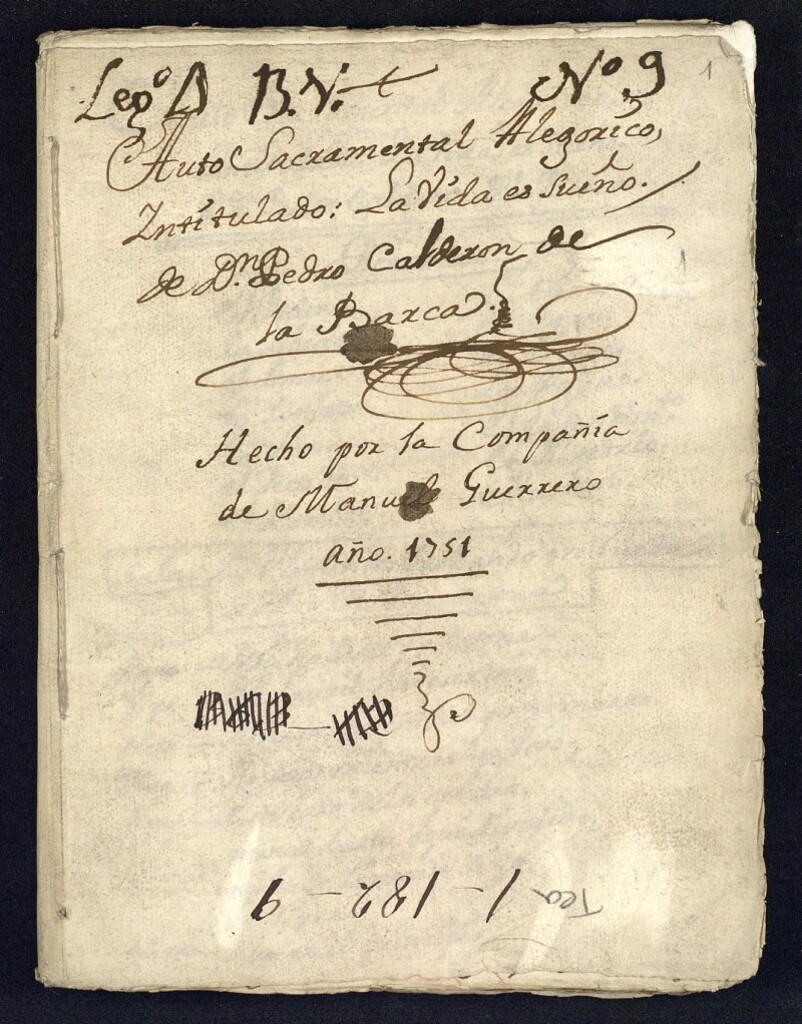 Leg.º D B.V. Nº. 9
1
Auto Sacramental Alegorico,
Intitulado: La Vida es Sueño.
de Dn. Pedro Calderon de
la Barca.
1
Hecho por la Compañia
de Manuel Guerrero
año. 1751
Tea 1-182-9